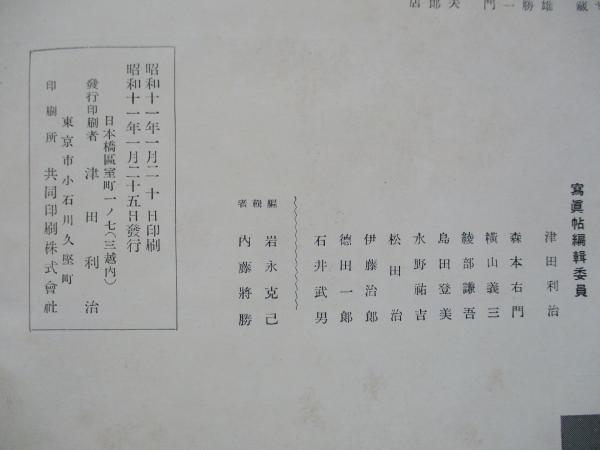 藏
雄
勝
一
門
夫
郎
店
寫眞帖編輯委員
津田利治
森本右門
橫山義三
綾部謙吾
島田登美
水野祐吉
松田治
伊藤治郎
德田一郎
石井武男
編輯者
岩永克己
內藤將勝
昭和十一年一月二十日印刷
昭和十一年一月二十五日發行
日本橋區室町一ノ七(三越內)
發行印刷者 津田利治
東京市小石川久堅町
印刷所 共同印刷株式會社